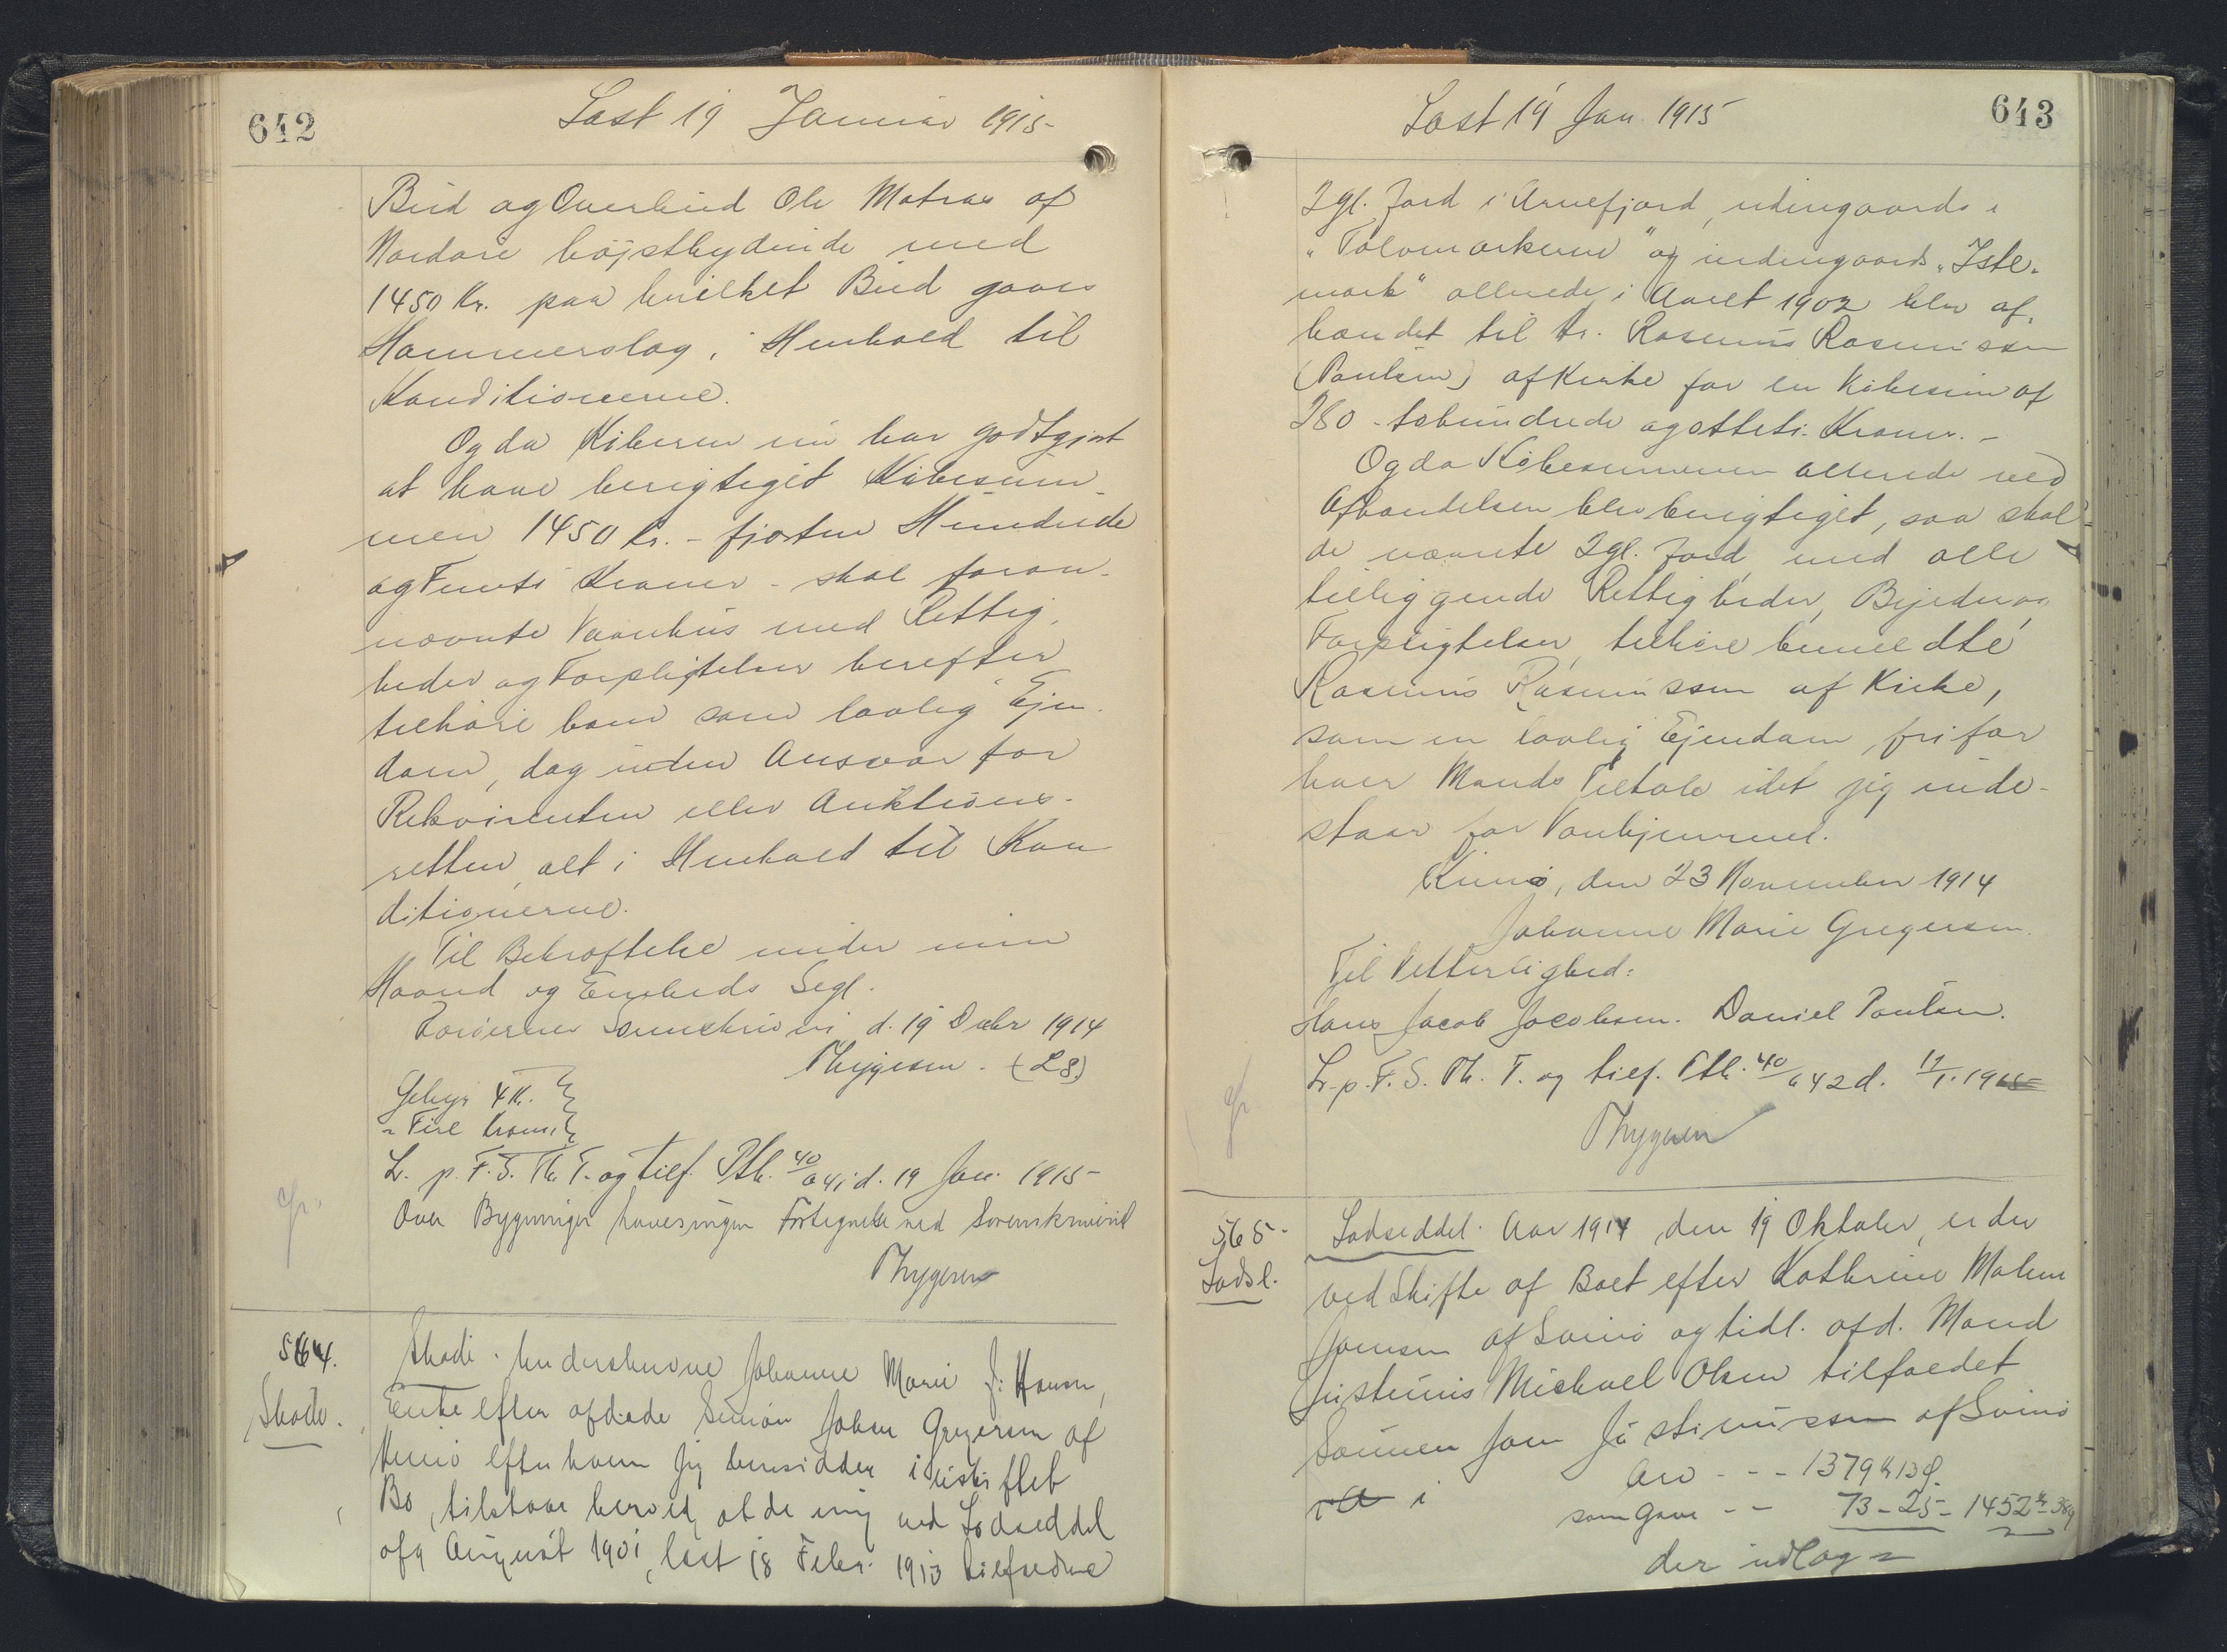 642
Læst 19 Januar 1915-
Bud og Overbud Ole Matras af
Nordøre højstbydende med
1450 Kr. paa hvilket Bud gaves
Hammerslag, i Henhold til
Konditionerne.
Og da Køberen nu har godtgjort
at have berigtiget Købesum-
men 1450 Kr. - fjorten Hundrede
og Femti Kroner - skal foran-
nævnte Vaanhus med Rettig-
heder og Forpligtelser herefter
tilhøre ham som lovlig Ejen-
dom, dog uden Ansvar for
Rekvirenten eller Auktions-
retten, alt i Henhold til Kon
ditionerne.
Til Bekræftelse under min
Haand og Embeds Segl.
Færøernes Sorenskriveri, d. 19 Decbr 1914
Thygesen. (LS.)
Gebyr 4 Kr.
- Fire Kroner
L. p. F. S. Th. T. og tilf. Ptb. 40/641 d. 19 Jan. 1915-
Over Bygninger haves ingen Fortegnelse ved Sorenskriveriet
Thygesen
564.
Skøde.
Skøde. Underskrevne Johanne Marie f: Hansen,
Enke efter afdøde Simon Johan Gregersen af
Kunø efter hvem jeg hensidder i uskiftet
Bo, tilstaar herved, at de mig ved Lodseddel
af 9 August 1901, læst 18 Febr. 1913 tilfaldne
643
Læst 19 Jan 1915
2 gl. Jord i Arnefjord, udengaards i
"Tolvmarkerne" og indengaards "Iste-
mark" allerede i Aaret 1902 blev af-
hændet til hr. Rasmus Rasmussen
(Poulsen) af Kirke for en Købesum af
280 - tohundrede og otteti Kroner. -
Og da Købesummen allerede ved
Afhændelsen blev berigtiget, saa skal
de nævnte 2 gl. Jord med alle
tilliggende Rettigheder, Byrder og
Forpligtelser, tilhøre bemeldte
Rasmus Rasmussen af Kirke,
som en lovlig Ejendom, fri for
hver Mands Tiltale idet jeg inde-
staar for Vanhjemmel.
Kunø, den 23 November 1914
Johanne Marie Gregersen.
Til Vitterlighed:
Hans Jacob Jacobsen. Daniel Poulsen.
L. p. F. S. Th. T. og tilf. Ptb. 40/642 d. 19/1. 1915
Thygesen
565-
Lodsl.
Lodseddel. Aar 1914, den 19 Oktober, er der
ved Skifte af Boet efter Kathrine Malene
Joensen af Svinø og tidl. afd. Mand
Justinus Michael Olsen tilfaldet
Sønnen Joen Justinussen af Svinø
i
Arv - - - 1379 Kr 13 Ø.
som Gave - - 73 - 25 - 1452 Kr - 38 Ø
der udlag=